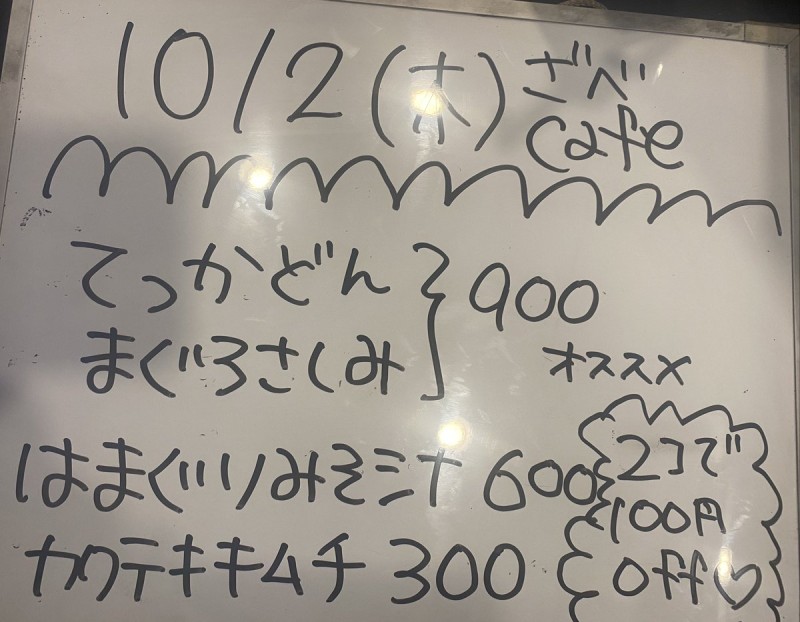 10/2(木) ざべ
cafe
てっかどん
まぐろさしみ } 900
オススメ
はまぐりみそミナ 600
カクテキキムチ 300
2コで
100円
off♡